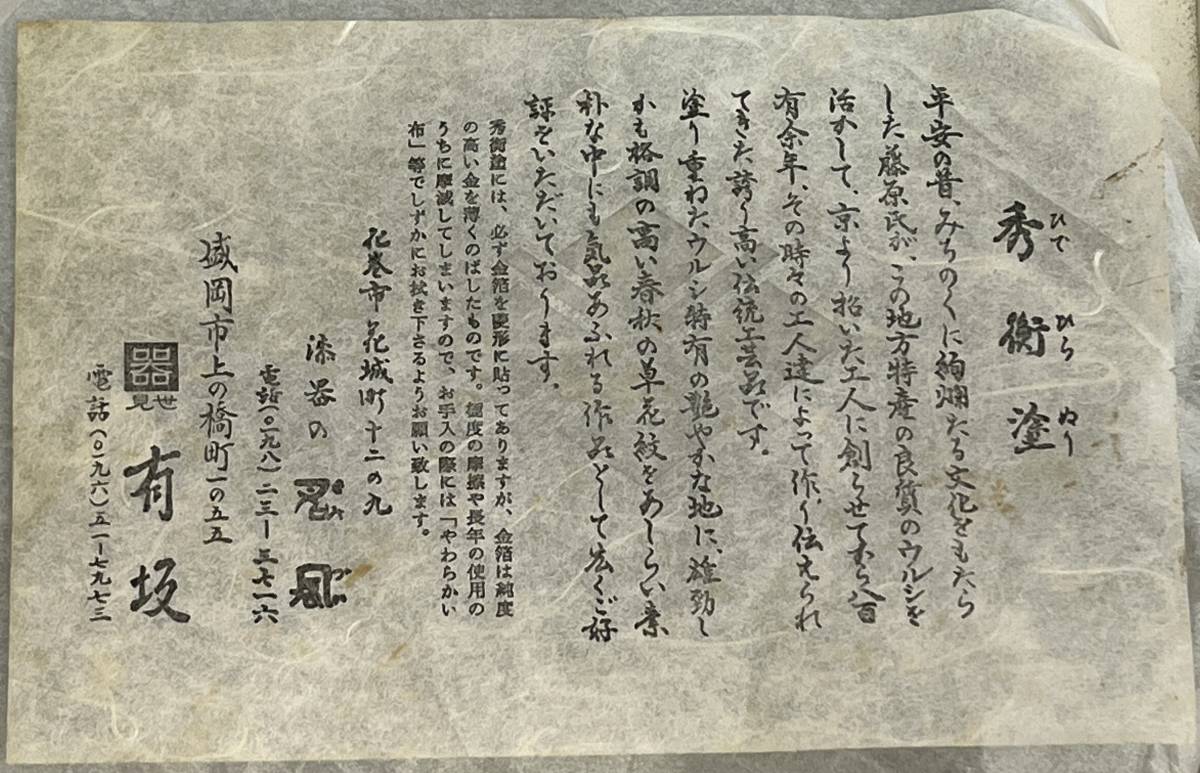 秀衡塗
ひでひらぬり
平安の昔、みちのくに絢爛たる文化をもたら
した藤原氏が、この地方特産の良質のウルシを
活かして、京より招いた工人に創らせてから八百
有余年、その時々の工人達によって作り伝えられ
てきた誇り高い伝統工芸品です。
塗り重ねたウルシ特有の艶やかな地に、雄勁し
かも格調の高い春秋の草花紋をあしらい素
朴な中にも気品あふれる作品として広くご好
評をいただいております。
秀衡塗には、必ず金箔を菱形に貼ってありますが、金箔は純度
の高い金を薄くのばしたものです。極度の摩擦や長年の使用の
うちに摩滅してしまいますので、お手入の際には「やわらかい
布」等でしずかにお拭き下さるようお願い致します。
花巻市花城町十二の九
漆器の
電話(〇一九八)二三ー三七一六
盛岡市上の橋町一の五五
器
見世
有坂
電話(〇一九六)五一ー七九七三